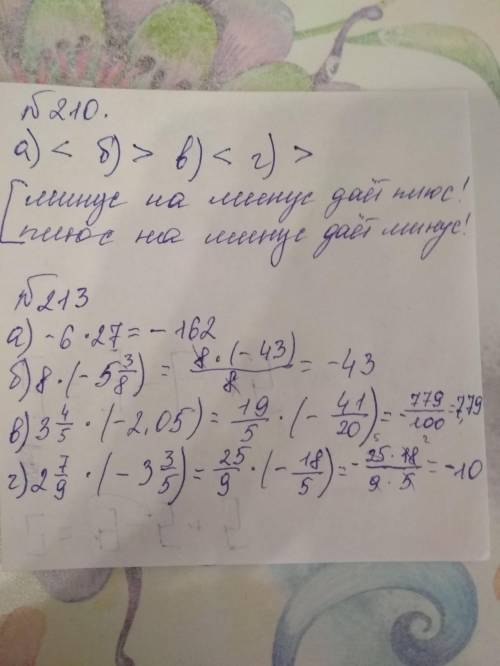 №210.
а) < б) > в) < г) >
[минус на минус даёт плюс!
плюс на минус даёт минус!
№213
а) -6 · 27 = - 162
б) 8 · (-5 3/8) = 8 · (-43)/8 = -43
в) 3 4/5 · (-2,05) = 19/5 · (- 41/20) = - 779/100 = 7,79
г) 2 7/9 · (- 3 3/5) = 25/9 · (- 18/5) = - 25 · 18/9 · 5 = -10